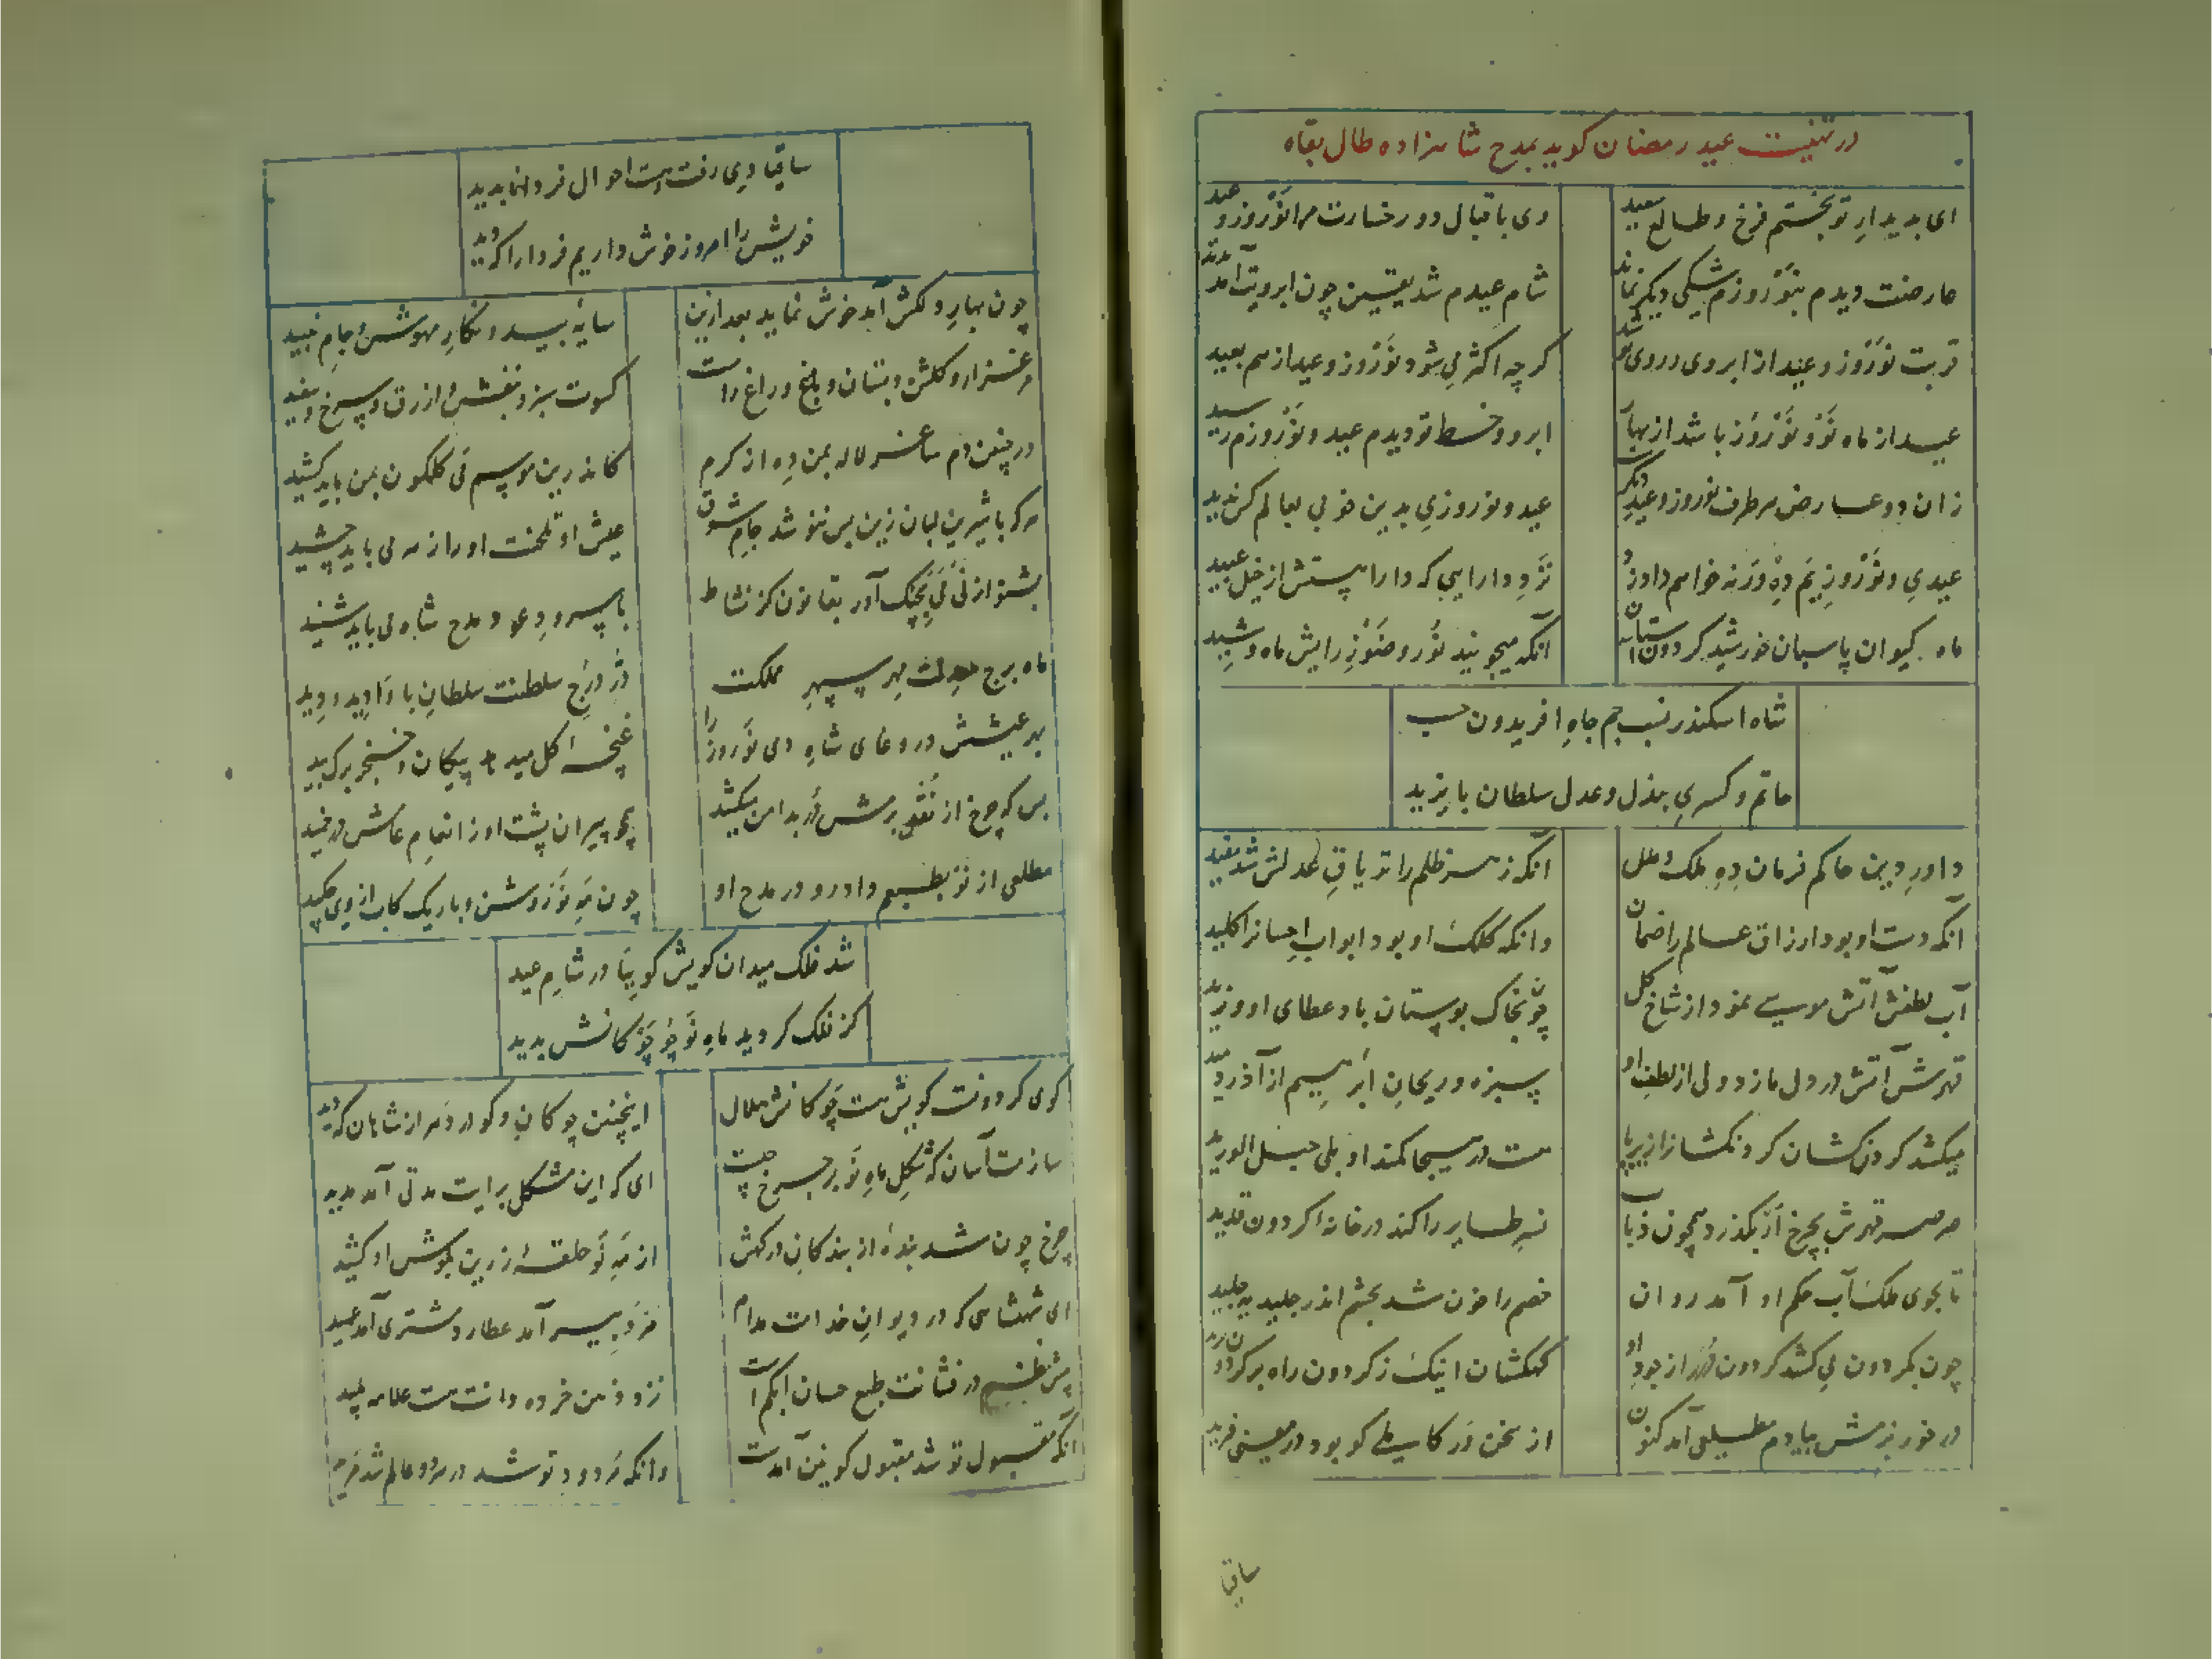 در تهنیت عید رمضان گوید بمدح شاهزاده طال بقاه
ای بدیدار تو بختم فرخ و طالع سعید
وی باقبال دو رخسارت مرا نوروز و عید
عارضت دیدم بنوروزم شکی دیگر نماند
شام عیدم شد یقین چون ابرویت آمد
قربت نوروز و عید از ابروی و روی تو شد
گرچه اکثر می شود نوروز و عید از هم بعید
عید از ماه نو و نوروز باشد از بهار
ابرو و خط تو دیدم عید و نوروزم رسید
زان دو عارض هر طرف نوروز و عید دیگر
عید و نوروزی بدین خوبی بعالم کس ندید
عیدی و نوروزیم ده ورنه خواهم داد ازو
نزد دارایی که دارا هستش از خیل عبید
ماه کیوان پاسبان خورشید گردون آستان
آنکه میجویند نور و ضو ز رایش ماه و شید
شاه اسکندر نسب جم جاه افریدون حسب
حاتم و کسری ببذل و عدل سلطان بایزید
داور دین حاکم فرمان ده ملک و ملل
آنکه زهر ظلم را تریاق عدلش شد مفید
آنکه دست او بود ارزاق عالم را ضمان
وانکه کلک او بود ابواب احسانرا کلید
آب لطفش آتش موسی نمود از شاخ گل
چو بخاک بوستان باد عطای او وزید
قهرش آتش در دل ما زد ولی از لطف او
سبزه و ریحان ابراهیم از آذر دمید
میکشد گردن کشان گر ونکشانرا زیر پا
هست در هیجا کمند او بلی حبل الورید
صرصر قهرش بچرخ ار بگذرد همچون ذباب
نسر طایر را کند در خانه گردون قدید
تا بجوی ملک آب حکم او آمد روان
خصم را خون شد بچشم اندر جلید
چون بگردون می کشد گردون گهر از جود او
کهکشان اینک ز گردون راه بر گردون
در خور بزمش بیادم مطلعی آمد کنون
از سخن در کاسطی کو بود در معنی فرید
ساقیا
ساقیا دی رفت و هست احوال فردا نابدید
خویش را امروز خوش داریم فردا را که دید
چون بهار دلکش آمد خوش نماید بعد ازین
سایه بید و نگار مهوش و جام نبید
مرغزار و گلشن و بستان و باغ و راغ راست
کسوت سبز و بنفش و ازرق و سرخ و سفید
در چنین دم ساغر لاله بمن ده از کرم
کاندرین موسم می گلگون بمن باید کشید
هر که با شیرین لبان زین پس ننوشد جام شوق
عیش او تلخست او را زهر می باید چشید
بشنو از نی نی بچنگ آور بقانون کز نشاط
با سرود عود مدح شاه می باید شنید
ماه برج معدلت مهر سپهر مملکت
در درج سلطنت سلطان با داد و دید
بهر عیشش در دعای شاه دی نوروز را
غنچه گل میدهد پیکان و خنجر برگ بید
بس که چرخ از نقد برش در بدامن میکشد
همچو پیران پشت او ز انعام عامش در خمید
مطلعی از نو بطبعم داد رو در مدح او
چون مه نو روشن و باریک کاب از وی چکید
شد فلک میدان گویش گوییا در شام عید
کز فلک گردید ماه نو چو چوگانش بدید
گوی گردونست گویش هست چوگانش هلال
اینچنین چوگان و گو در دهر از شاهان که دید
سازمت آسان که شکل ماه نو بر چرخ چیست
ای که این مشکل برایت مدتی آمد مدید
چرخ چون شد بنده از بندگان درگهش
از مه نو حلقه زرین بگوش او کشید
ای شهنشاهی که در دیوان خدامت مدام
خرد پیر آمد عطارد مشتری آمد عمید
پیش نظم در فشانت طبع حسان ابکم است
نزد ذهن خرده دانت هست علامه بلید
آنکه مقبول تو شد مقبول کونین آمدست
وانکه مردود تو شد در هر دو عالم شد مرید